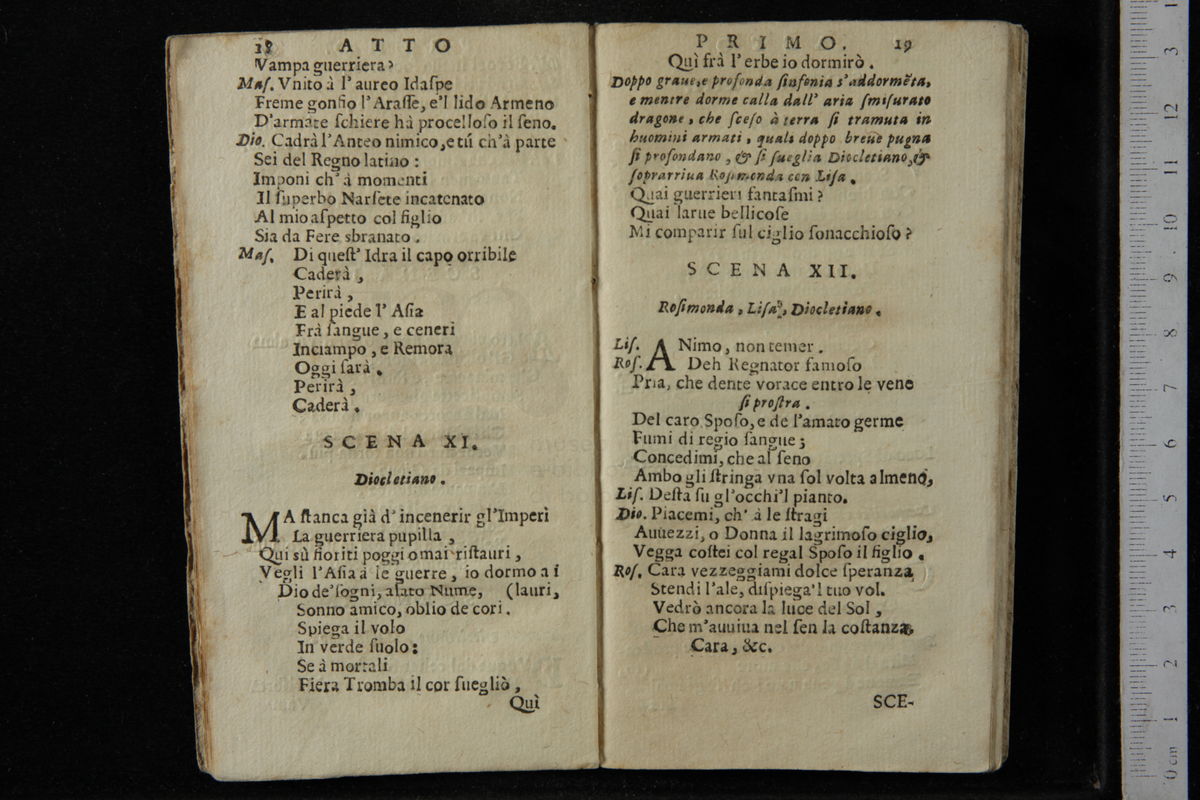 18 ATTO
Vampa guerriera?
Maſ. Vnito à l'aureo Idaſpe
Freme gonfio l'Araſſe, e'l lido Armeno
D'armate ſchiere hà procelloſo il ſeno.
Dio. Cadrà l'Anteo nimico, e tú ch'à parte
Sei del Regno latino:
Imponi ch'à momenti
Il ſuperbo Narſete incatenato
Al mio aſpetto col figlio
Sia da Fere sbranato.
Maſ. Di queſt' Idra il capo orribile
Caderà,
Perirà,
E al piede l'Aſia
Frà ſangue, e ceneri
Inciampo, e Remora
Oggi ſarà.
Perirà,
Caderà.
SCENA XI.
Diocletiano.
MA ſtanca già d'incenerir gl'Imperi
La guerriera pupilla,
Qui sù fioriti poggi omai riſtauri,
Vegli l'Aſia à le guerre, io dormo a i
Dio de'ſogni, alato Nume, (lauri,
Sonno amico, oblio de cori.
Spiega il volo
In verde ſuolo:
Se à mortali
Fiera Tromba il cor ſuegliò,
Quì
PRIMO. 19
Quì frà l'erbe io dormirò.
Doppo graue, e profonda ſinfonia s'addormẽta,
e mentre dorme calla dall' aria ſmiſurato
dragone, che ſceſo à terra ſi tramuta in
huomini armati, quali doppo breue pugna
ſi profondano, & ſi ſueglia Diocletiano, &
ſoprarriua Roſimonda con Liſa.
Quai guerrieri fantaſmi?
Quai larue bellicoſe
Mi comparir ſul ciglio ſonacchioſo?
SCENA XII.
Roſimonda, Liſa, Diocletiano.
Liſ. ANimo, non temer.
Roſ. Deh Regnator famoſo
Pria, che dente vorace entro le vene
ſi proſtra.
Del caro Spoſo, e de l'amato germe
Fumi di regio ſangue;
Concedimi, che al ſeno
Ambo gli ſtringa vna ſol volta almeno,
Liſ. Deſta ſu gl'occhi'l pianto.
Dio. Piacemi, ch' à le ſtragi
Auuezzi, o Donna il lagrimoſo ciglio,
Vegga coſtei col regal Spoſo il figlio.
Roſ. Cara vezzeggiami dolce ſperanza
Stendi l'ale, diſpiega'l tuo vol.
Vedrò ancora la luce del Sol,
Che m'auuiua nel ſen la coſtanza.
Cara, &c.
SCE-
0 cm 1 2 3 4 5 6 7 8 9 10 11 12